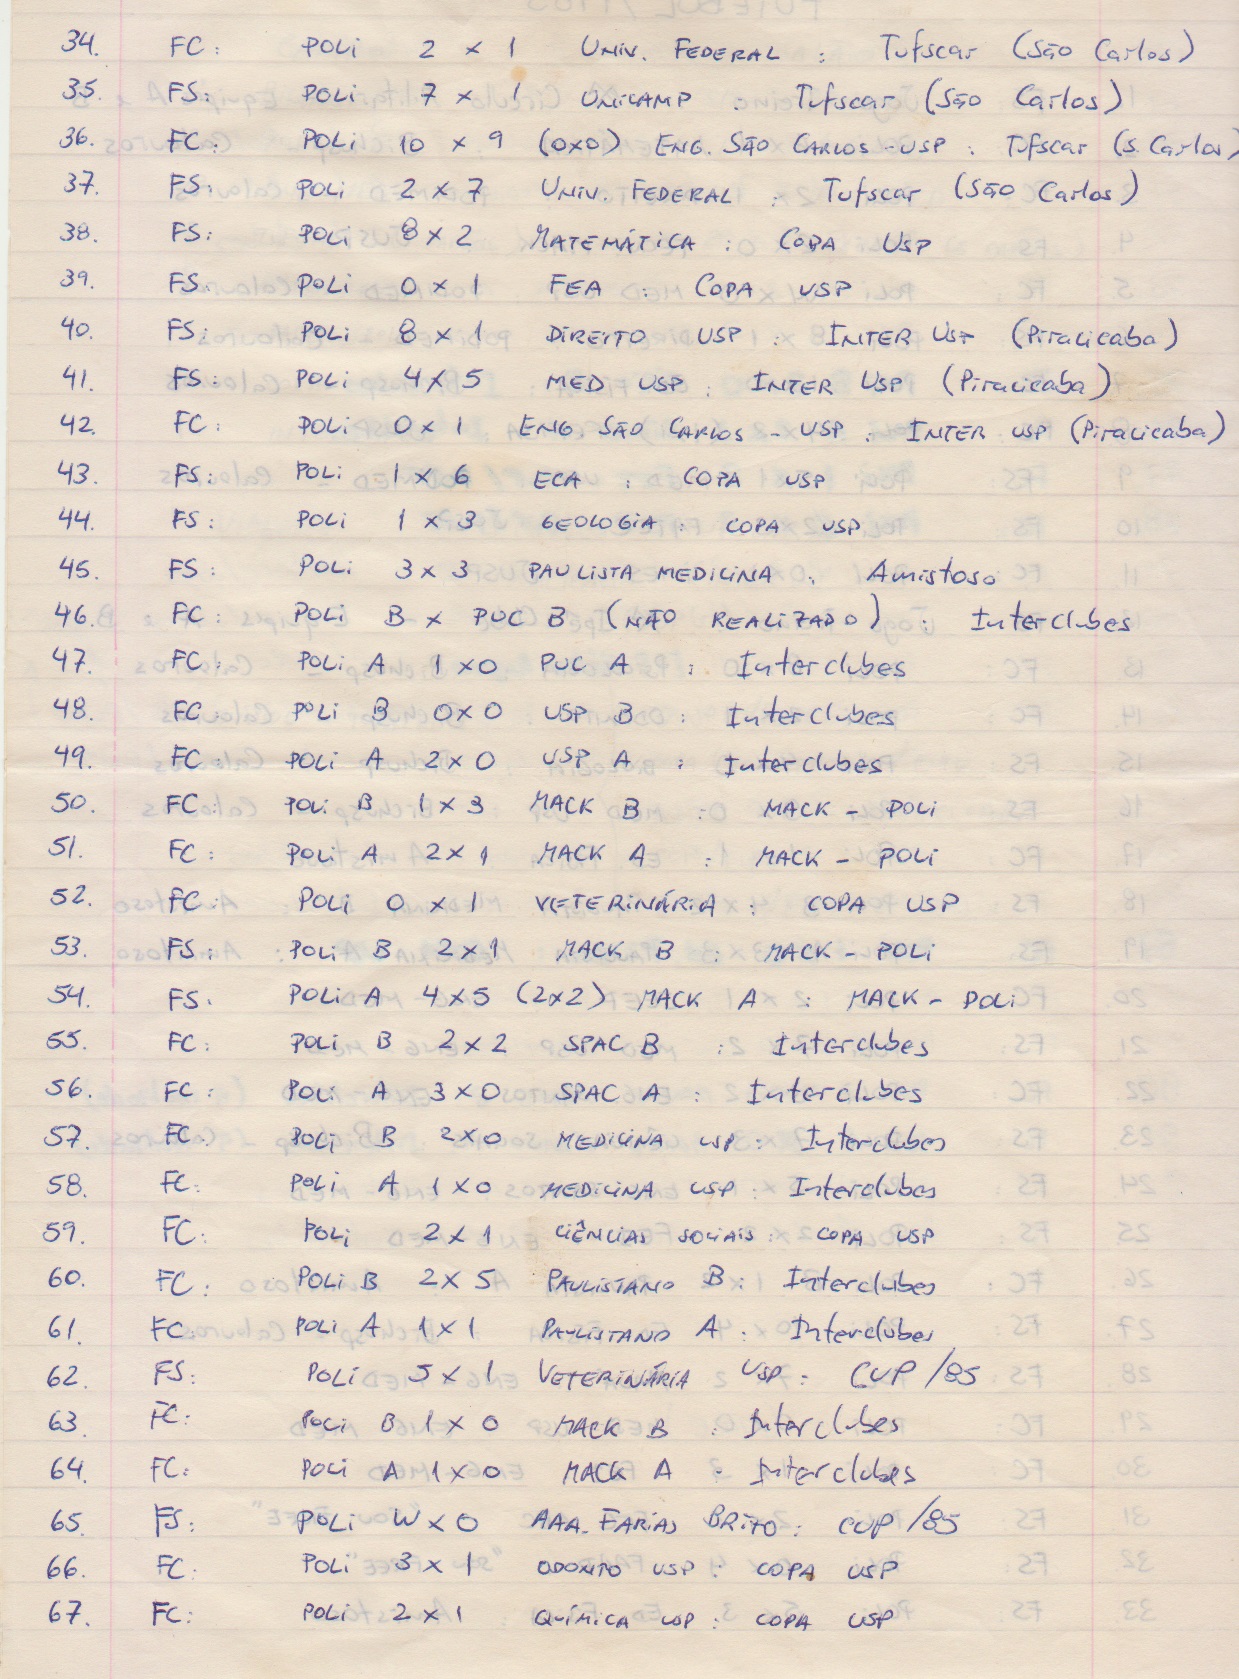 34. FC: POLI 2 x 1 UNIV. FEDERAL : Tufscar (São Carlos)
35. FS: POLI 7 x 1 UNICAMP : Tufscar (São Carlos)
36. FC: POLI 10 x 9 (0x0) ENG. SÃO CARLOS - USP : Tufscar (S. Carlos)
37. FS: POLI 2 x 7 UNIV. FEDERAL : Tufscar (São Carlos)
38. FS: POLI 8 x 2 MATEMÁTICA : COPA USP
39. FS: POLI 0 x 1 FEA : COPA USP
40. FS: POLI 8 x 1 DIREITO USP : INTER USP (Piracicaba)
41. FS: POLI 4 x 5 MED USP : INTER USP (Piracicaba)
42. FC: POLI 0 x 1 ENG. SÃO CARLOS - USP : INTER USP (Piracicaba)
43. FS: POLI 1 x 6 ECA : COPA USP
44. FS: POLI 1 x 3 GEOLOGIA : COPA USP
45. FS: POLI 3 x 3 PAULISTA MEDICINA : Amistoso
46. FC: POLI B x PUC B (NÃO REALIZADO) : Interclubes
47. FC: POLI A 1 x 0 PUC A : Interclubes
48. FC: POLI B 0 x 0 USP B : Interclubes
49. FC: POLI A 2 x 0 USP A : Interclubes
50. FC: POLI B 1 x 3 MACK B : MACK - POLI
51. FC: POLI A 2 x 1 MACK A : MACK - POLI
52. FC: POLI 0 x 1 VETERINÁRIA : COPA USP
53. FS: POLI B 2 x 1 MACK B : MACK - POLI
54. FS: POLI A 4 x 5 (2x2) MACK A : MACK - POLI
55. FC: POLI B 2 x 2 SPAC B : Interclubes
56. FC: POLI A 3 x 0 SPAC A : Interclubes
57. FC: POLI B 2 x 0 MEDICINA USP : Interclubes
58. FC: POLI A 1 x 0 MEDICINA USP : Interclubes
59. FC: POLI 2 x 1 CIÊNCIAS SOCIAIS : COPA USP
60. FC: POLI B 2 x 5 PAULISTANO B : Interclubes
61. FC: POLI A 1 x 1 PAULISTANO A : Interclubes
62. FS: POLI 5 x 1 VETERINÁRIA USP : CUP /85
63. FC: POLI B 1 x 0 MACK B : Interclubes
64. FC: POLI A 1 x 0 MACK A : Interclubes
65. FS: POLI W x 0 AAA. FARIAS BRITO : CUP /85
66. FC: POLI 3 x 1 ODONTO USP : COPA USP
67. FC: POLI 2 x 1 QUÍMICA USP : COPA USP